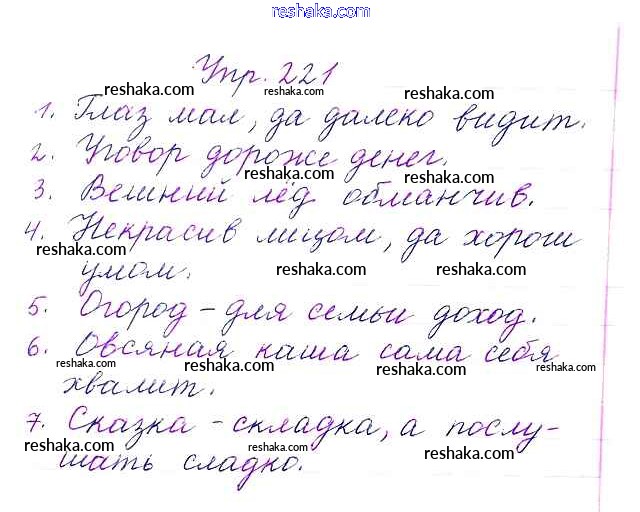 reshaka.com
Упр. 221
reshaka.com reshaka.com reshaka.com
1. Глаз мал, да далеко видит.
reshaka.com
2. Уговор дороже денег.
reshaka.com reshaka.com
3. Вешний лёд обманчив.
4. Некрасив лицом, да хорош
reshaka.com
умом. reshaka.com reshaka.com
5. Огород – для семьи доход.
reshaka.com
6. Овсяная каша сама себя
reshaka.com reshaka.com reshaka.com
хвалит.
7. Сказка – складка, а послу-
reshaka.com reshaka.com reshaka.com
шать сладко.